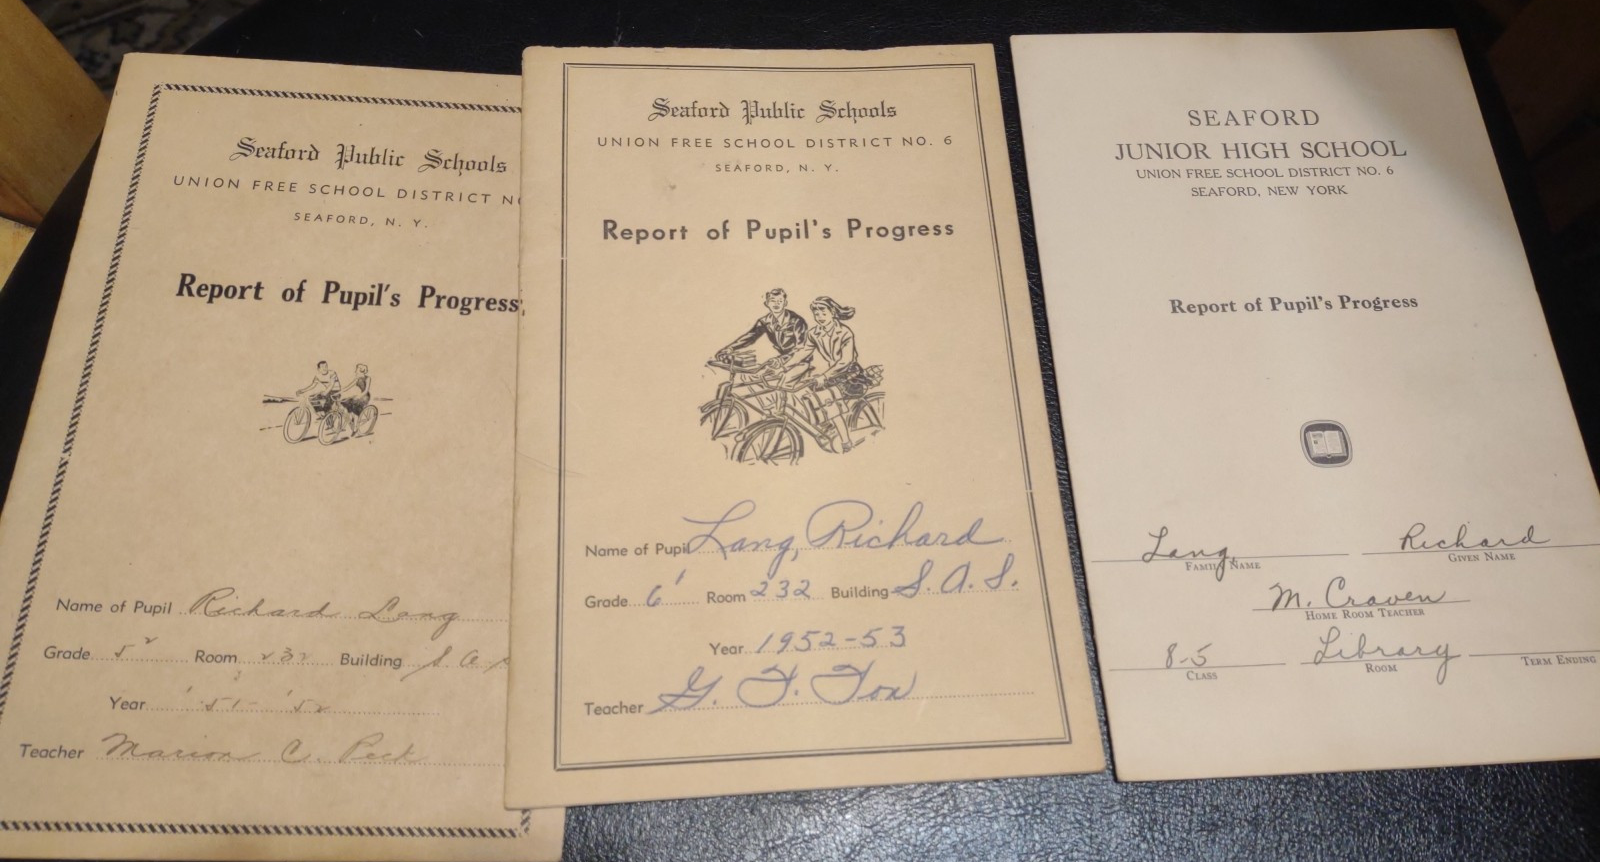 Seaford Public Schools
UNION FREE SCHOOL DISTRICT
SEAFORD, N. Y.
Report of Pupil's Progress
Name of Pupil Richard Lang
Grade 5² Room 232 Building S A S
Year '51-'52
Teacher Marion C. Peck
Seaford Public Schools
UNION FREE SCHOOL DISTRICT NO. 6
SEAFORD, N. Y.
Report of Pupil's Progress
Name of Pupil Lang, Richard
Grade 6¹ Room 232 Building S. A. S.
Year 1952-53
Teacher G. F. Fox
SEAFORD
JUNIOR HIGH SCHOOL
UNION FREE SCHOOL DISTRICT NO. 6
SEAFORD, NEW YORK
Report of Pupil's Progress
Lang, Richard
FAMILY NAME GIVEN NAME
M. Craven
HOME ROOM TEACHER
8-5 Library
CLASS ROOM TERM ENDING